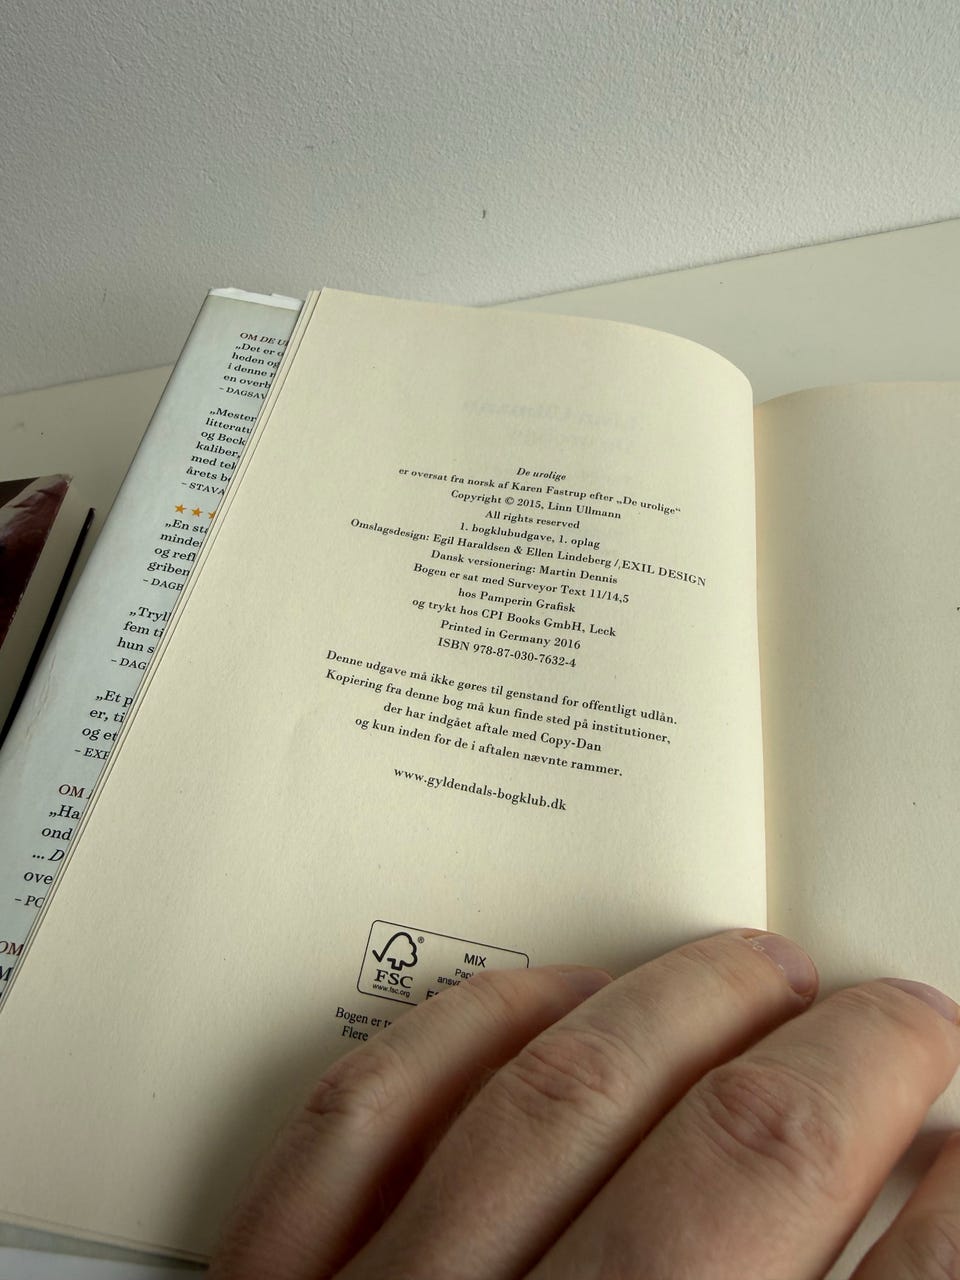 OM DE U
„Det er o
heden og
i denne r
en overb
– DAGSAV
„Mester
litteratu
og Beck
kaliber,
med tek
årets b
– STAVA
„En st
minde
og refl
griben
– DAGB
„Tryl
fem ti
hun s
– DAG
„Et p
er, ti
og et
– EXP
OM
„Ha
ond
... D
ove
– PO
OM
M
De urolige
er oversat fra norsk af Karen Fastrup efter „De urolige“
Copyright © 2015, Linn Ullmann
All rights reserved
1. bogklubudgave, 1. oplag
Omslagsdesign: Egil Haraldsen & Ellen Lindeberg / EXIL DESIGN
Dansk versionering: Martin Dennis
Bogen er sat med Surveyor Text 11/14,5
hos Pamperin Grafisk
og trykt hos CPI Books GmbH, Leck
Printed in Germany 2016
ISBN 978-87-030-7632-4
Denne udgave må ikke gøres til genstand for offentligt udlån.
Kopiering fra denne bog må kun finde sted på institutioner,
der har indgået aftale med Copy-Dan
og kun inden for de i aftalen nævnte rammer.
www.gyldendals-bogklub.dk
FSC
www.fsc.org
MIX
Pap
ansva
Bogen er tr
Flere